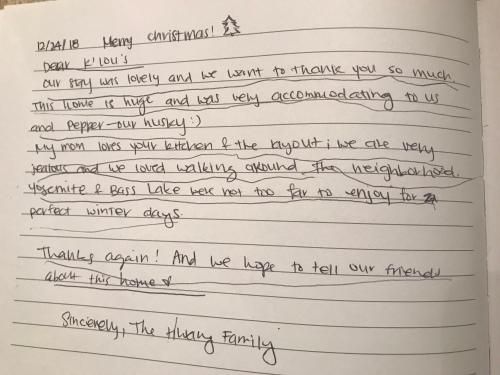 12/24/18 Merry Christmas!
Dear K'Lou's
Our stay was lovely and we want to thank you so much.
This home is huge and was very accommodating to us
and Pepper-our husky:)
My mom loves your kitchen & the layout; we are very
jealous and we loved walking around the neighborhood.
Yosemite & Bass Lake were not too far to enjoy for
perfect winter days.
Thanks again! And we hope to tell our friends
about this home
Sincerely, The Hwang Family